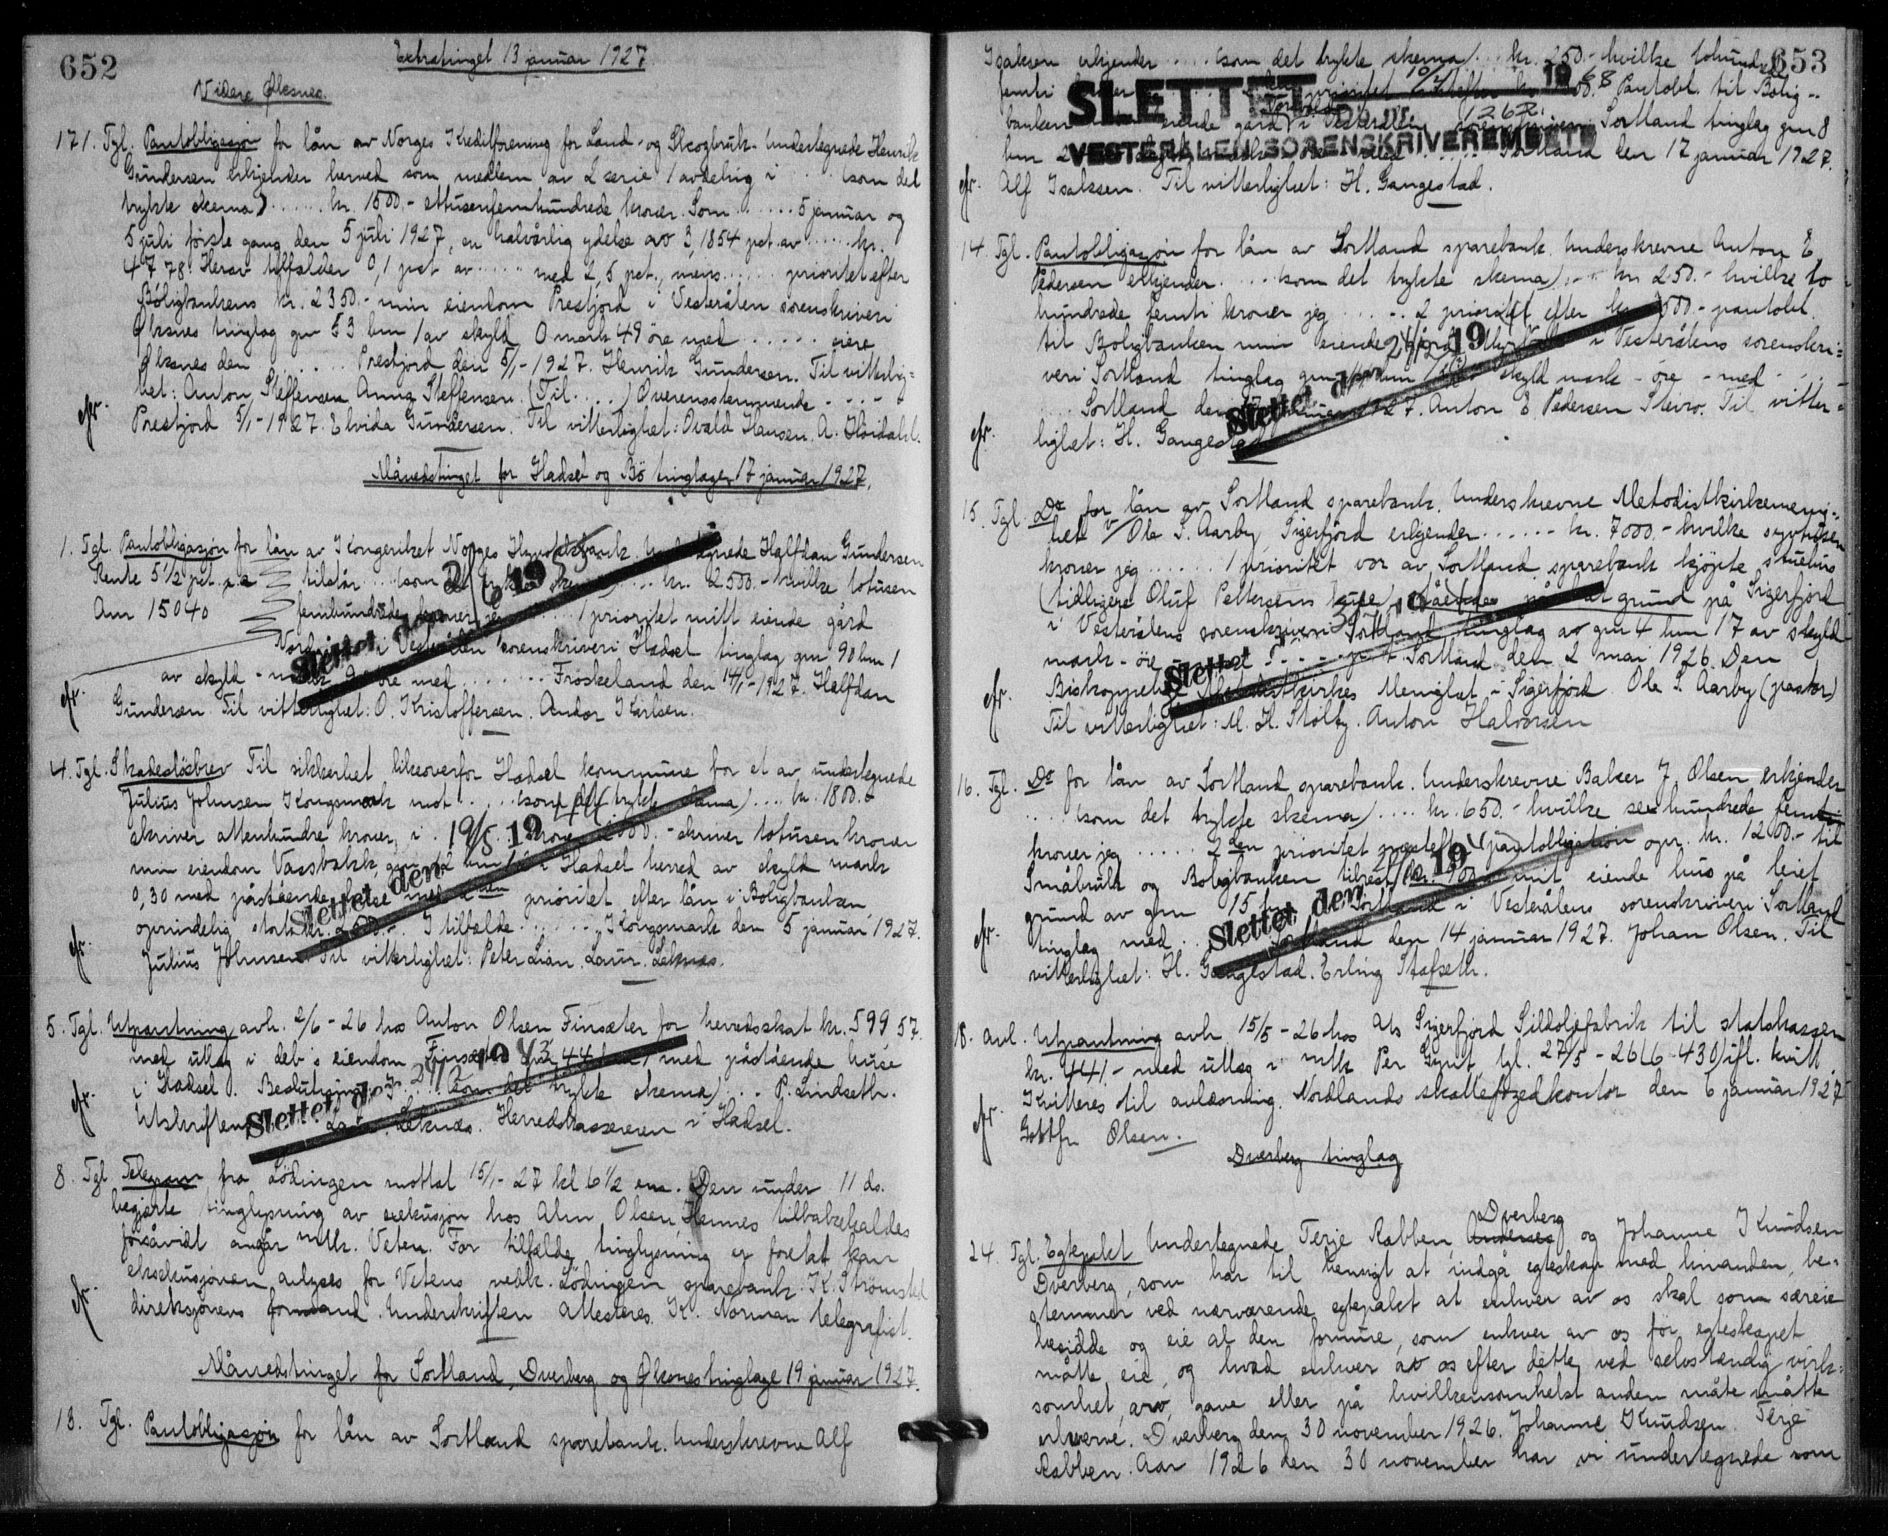 652
Extratinget 13 januar 1927
Videre Øksnes.
171. Tgl. Pantobligasjon for lån av Norges Kreditforening for Land- og Skogbruk. Undertegnede Henrik
Gundersen erkjender herved som medlem av 2 serie 1 avdeling i ... (som det
trykte skema) ...... kr. 1500.- ettusenfemhundrede kroner. Som ...... 5 januar og
5 juli første gang den 5 juli 1927, en halvårlig ydelse av 3,1854 pct. av ...... kr.
47 78. Herav tilfalder 0,1 pct av ...... med 2,5 pct., mens ...... prioritet efter
Boligbankens kr. 2350.- min eiendom Presfjord i Vesterålen sorenskriveri
Øksnes tinglag gnr 53 bnr 1 av skyld 0 mark 49 øre med ...... eiere
Øksnes den ...... Presfjord den 5/1-1927. Henrik Gundersen. Til vitterlig-
het: Anton Steffensen Anna Steffensen. (Til ....) Overensstemmende - - - -
cfr. Presfjord 5/1-1927. Elvida Gundersen. Til vitterlighet: Osvald Hansen. A. Høidahl.
Månedstinget for Hadsel og Bö tinglager 17 januar 1927.
1. Tgl. Pantobligasjon for lån av Kongeriket Norges Hypotekbank. Undertegnede Halfdan Gundersen
Rente 5½ pct. p.a. tilstår .... (som det trykte skema) .... kr. 2500.- hvilke totusen
Ann 15040 femhundrede kroner jeg ...... 1 prioritet mitt eiende gård
i Vesterålen sorenskriveri Hadsel tinglag gnr 90 bnr 1
av skyld - mark øre med ...... Frøskeland den 14/1-1927. Halfdan
cfr. Gundersen. Til vitterlighet: O. Kristoffersen. Andor Karlsen.
Slettet den 2/6 1955
4. Tgl. Skadesløsbrev Til sikkerhet likeoverfor Hadsel kommune for et av undertegnede
Julius Johnsen Kongsmark mot ..... (som det trykte skema) .... kr. 1800.-
skriver attenhundre kroner, i ...... kroner 2000.- skriver totusen kroner
min eiendom Vassbakk, gnr bnr i Hadsel herred av skyld mark
0,30 med påstående huse med prioritet efter lån i Boligbanken,
oprindelig stort kr. I tilfælde ...... Kongsmark den 5 januar 1927.
cfr. Julius Johnsen. Til vitterlighet: Peter Lian. Laur. Leknes.
Slettet den 19/5 19
5. Tgl. Utpantning avh. 2/6-26 hos Anton Olsen Finsæter for herredsskat kr. 599 57.
med utlæg i deb's eiendom Finsæter gnr 44 bnr 1 med påstående huse
i Hadsel. Beslutning ...... (som det trykte skema) ... P. Lindseth.
cfr. Utskriften ...... Laur. Leknes. Herredskassereren i Hadsel.
Slettet den 1943
8. Tgl Telegram fra Lødingen mottat 15/1-27 kl 6½ em. Den under 11 ds.
begjærte tinglysning av exekusjon hos Alm Olsen, Hennes tilbakekaldes
forsåvidt angår mtk. Veten. For tilfælde tinglysning er foretat kan
eksekusjonen avlyses for Vetens vedk. Lödingen sparebank. K. Strömsted
cfr. direksjonens formand. Underskriften attesteres. K. Norman telegrafist.
Månedstinget for Sortland, Dverberg og Øksnes tinglage 19 januar 1927.
13. Tgl. Pantobligasjon for lån av Sortland sparebank. Underskrevne Alf
653
Isaksen erkjender ..... (som det trykte skema) ... kr. 250.- hvilke tohundrede
femti kroner prioritet efter Pantobl. til Bolig-
banken eiende gård i Vesterålen Sortland tinglag gnr 8
bnr Sortland den 17 januar 1927.
cfr. Alf Isaksen. Til vitterlighet: H. Gangestad.
SLETTET 10/4 1968
D. nr. 1262
VESTERÅLEN SORENSKRIVEREMBETE
14. Tgl. Pantobligasjon for lån av Sortland sparebank. Underskrevne Anton E
Pedersen erkjender .... (som det trykte skema) ... kr 250.- hvilke to
hundrede femti kroner jeg ..... 2 prioritet efter kr 500.- pantobl.
til Boligbanken min eiende gård i Vesterålens sorenskri-
veri Sortland tinglag gnr bnr skyld mark - øre - med ....
.... Sortland den 17 januar 1927. Anton E Pedersen Stevro. Til vitter-
cfr. lighet: H. Gangestad
Slettet den 19
15. Tgl. Do for lån av Sortland sparebank. Underskrevne Metodistkirkemenig-
het v/ Ole S. Aarby, Sigerfjord erkjender ...... kr. 7000.- hvilke syvtusen
kroner jeg ...... 1 prioritet vor av Sortland sparebank kjøpte stuehus
(tidligere Oluf Pettersens hus) på grund på Sigerfjord
i Vesterålens sorenskriveri Sortland tinglag av gnr 4 bnr 17 av skyld
mark - øre ...... Sortland den 2 mai 1926. Den
cfr. Biskoppelige Metodistkirkes Menighet i Sigerfjord. Ole S. Aarby (pastor)
Til vitterlighet: M. H. Stolty. Anton Halvorsen
Slettet 19
16. Tgl. Do for lån av Sortland sparebank. Underskrevne Balser J. Olsen erkjender
... (som det trykte skema) .... kr. 650.- hvilke sexhundrede femti
kroner jeg ...... 2den prioritet næstefter pantobligation opr. kr. 1200.- til
Småbruk og Boligbanken mit eiende hus på leiet
grund av gnr 15 Sortland i Vesterålens sorenskriveri Sortland
cfr. tinglag med ... Sortland den 14 januar 1927. Johan Olsen. Til
vitterlighet: H. Gangestad. Erling Stafseth.
Slettet den 19
18. Avl. Utpantning avh 15/5-26 hos A/s Sigerfjord Sildoljefabrik til statskassen
kr. 441,- med utlæg i mtk Per Gynt, tgl. 27/5-26 (6-430) ifl. kvitt.
Kvitteres til avlæsning. Nordlands skattefogedkontor den 6 januar 1927
cfr. Gottfr Olsen.
Dverberg tinglag
24. Tgl. Egtepakt Undertegnede Terje Rabben, Andenes Dverberg og Johanne Knudsen
Dverberg, som har til hensigt at indgå egteskap med hinanden, be-
stemmer ved nærværende egtepakt at enhver av os skal som særeie
besidde og eie al den formue, som enhver av os før egteskapet
måtte eie, og hvad enhver av os efter dette ved selvstændig virk-
somhet, arv, gave eller på hvilkensomhelst anden måte måtte
erhverve. Dverberg den 30 november 1926. Johanne Knudsen. Terje
Rabben. Aar 1926 den 30 november har vi undertegnede som